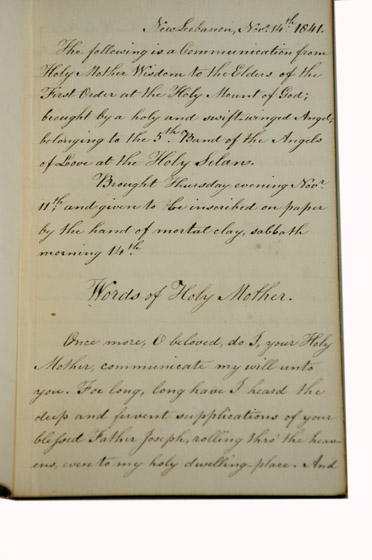 New Lebanon, Nov. 14th 1841.
The following is a Communication from
Holy Mother Wisdom to the Elders of the
First Order at the Holy Mount of God;
brought by a holy and swift-winged Angel,
belonging to the 5th Band of the Angels
of Love at the Holy Selan.
Brought Thursday evening Nov.
11th and given to be inscribed on paper
by the hand of mortal clay, sabbath
morning 14th
Words of Holy Mother.
Once more, O beloved, do I, your Holy
Mother, communicate my will unto
you. For long, long have I heard the
deep and fervent supplications of your
blessed Father Joseph, rolling thro' the heav-
ens, even to my holy dwelling-place. And